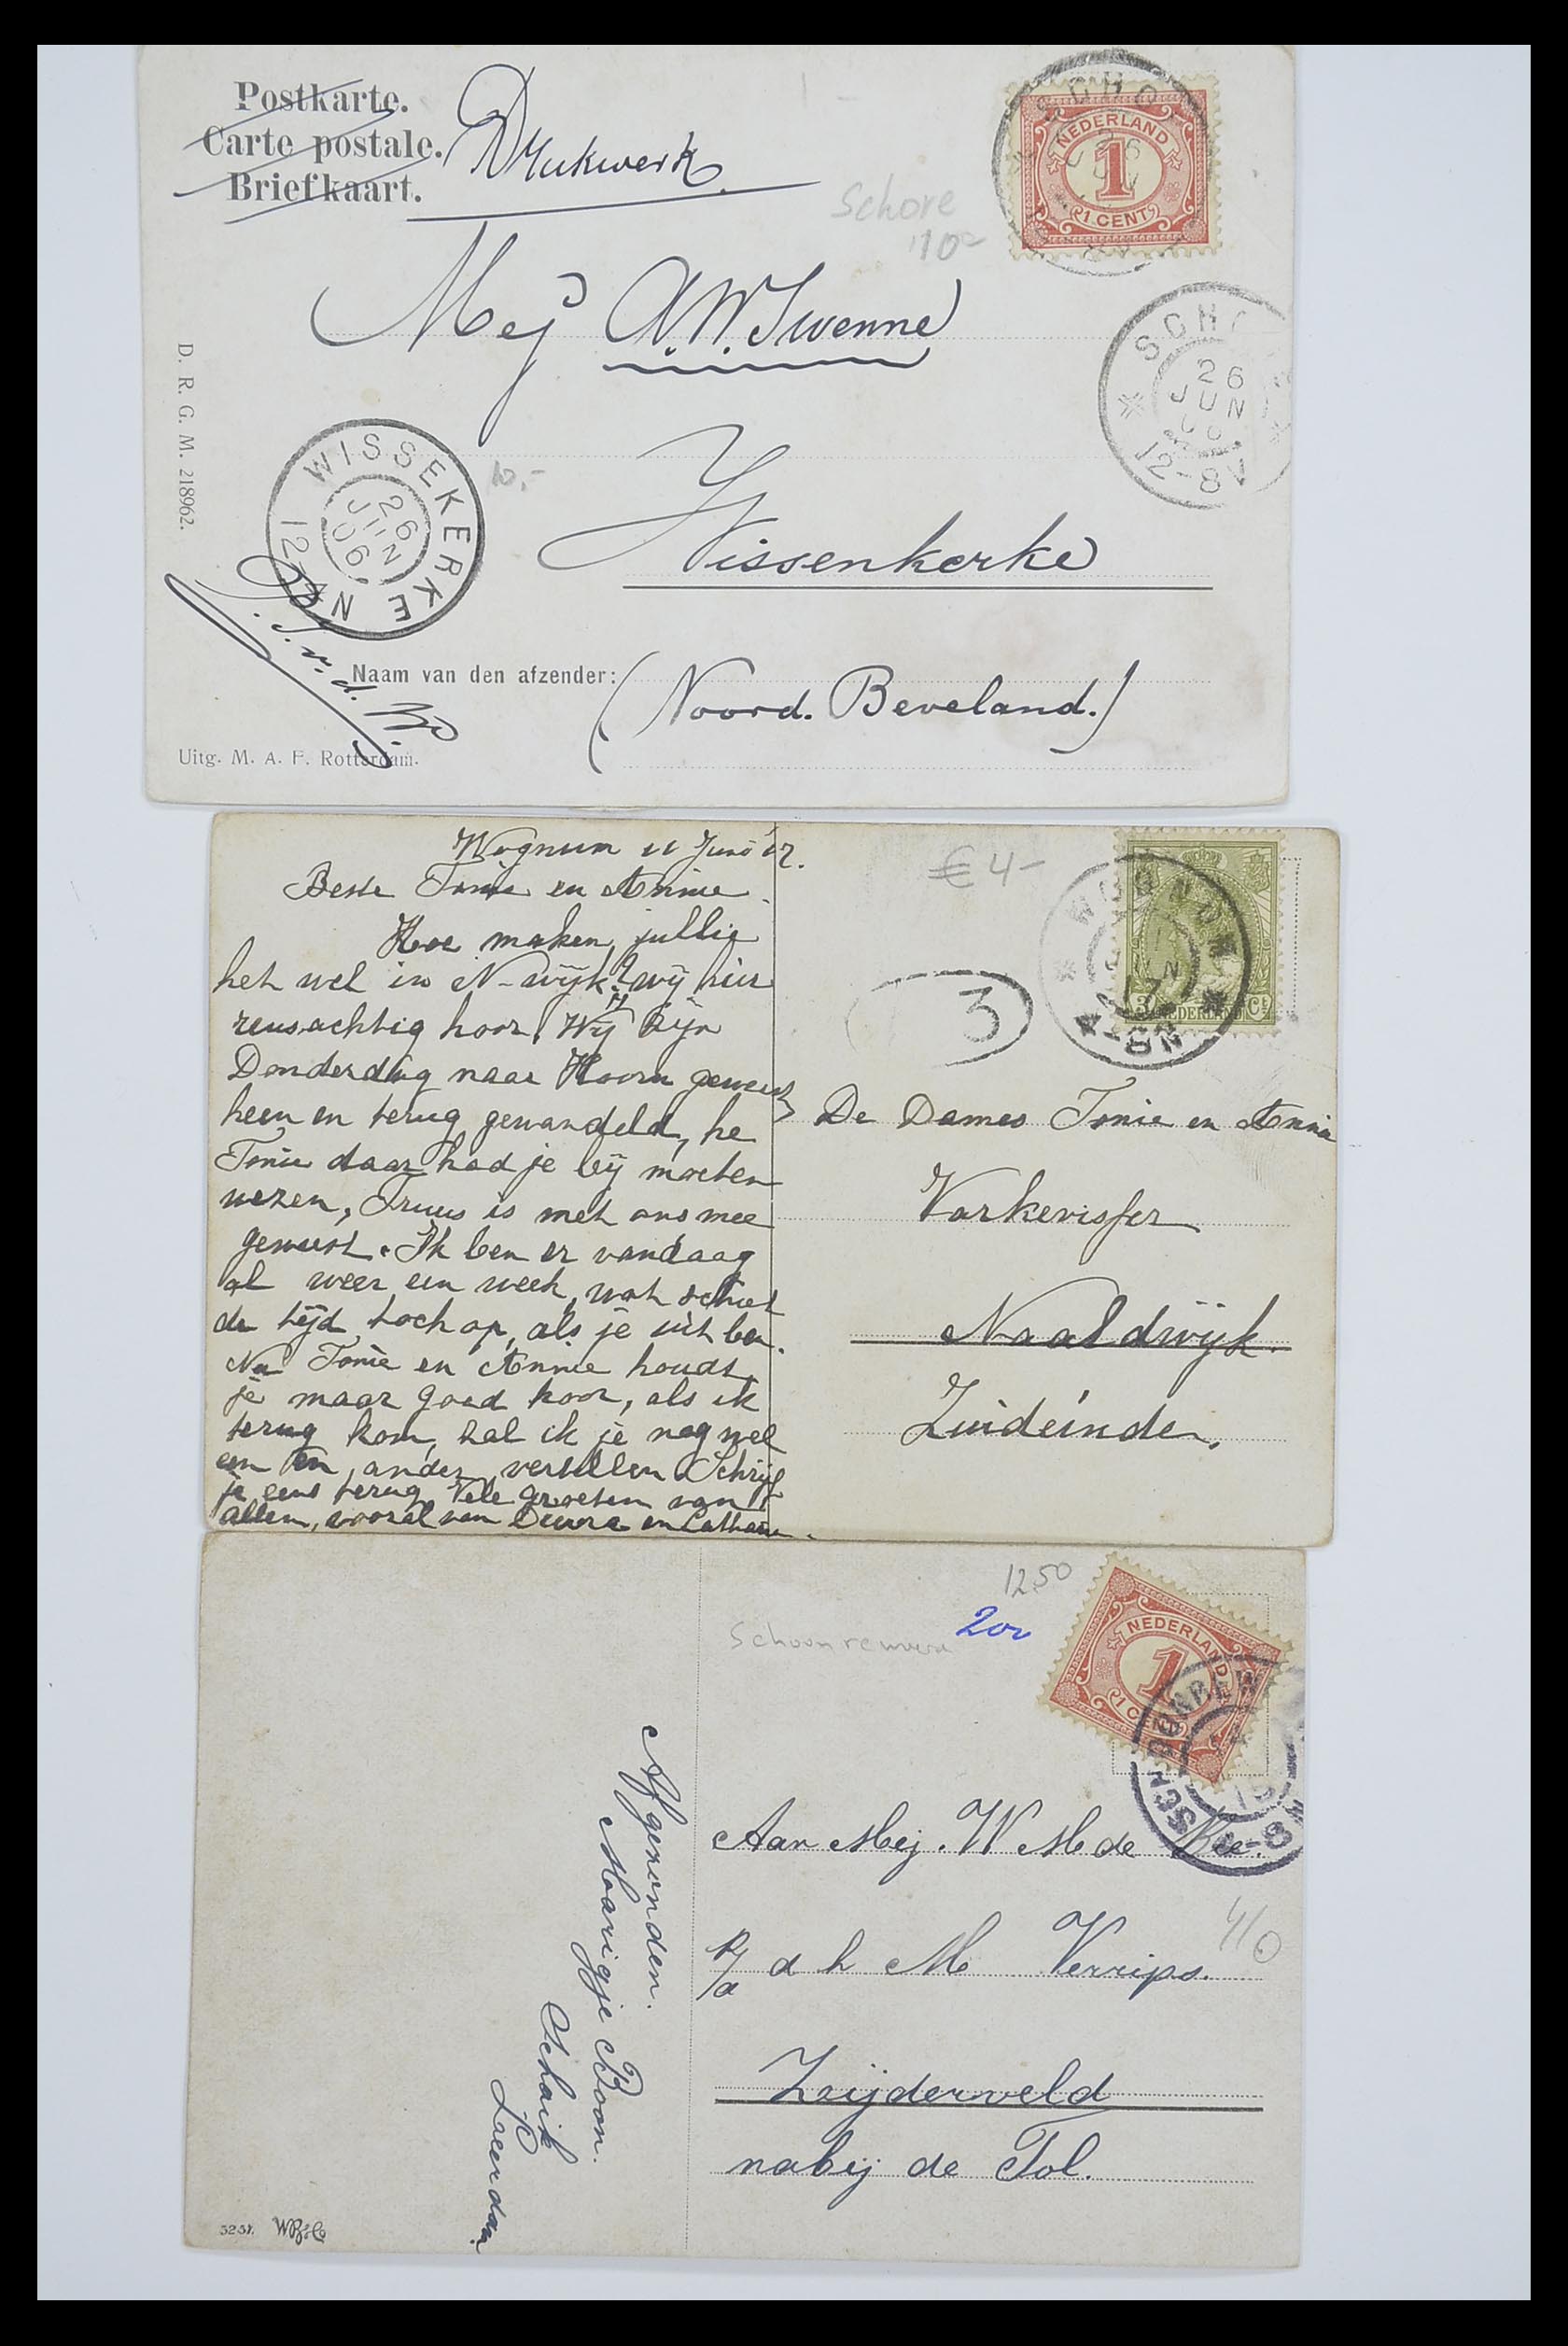 Postkarte.
Carte postale.
Briefkaart.
Drukwerk.
Schore
10-
NEDERLAND
1
1 CENT
Mej A.W. Swenne
SCHO
26
JUN
06
12-8V
D. R. G. M. 218962.
WISSEKERKE
26
JUN
06
12-4N
10,-
Wissenkerke
Naam van den afzender:
(Noord. Beveland.)
J. v. d. W
Uitg. M. A. F. Rotterdam.
Wognum 11 Juni '17.
Beste Tonie en Annie.
Hoe maken jullie
het wel in N-wijk? wij hier
reusachtig hoor. Wij zijn
Donderdag naar Hoorn geweest
heen en terug gewandeld, he
Tonie daar had je bij moeten
wezen, Truus is met ons mee
geweest. Ik ben er vandaag
al weer een week, wat schiet
de tijd toch op, als je uit ben.
Nu Tonie en Annie houdt
je maar goed hoor, als ik
terug kom, zal ik je nog wel
een en ander vertellen. Schrijf
je eens terug Vele groeten van
allen, vooral van en
€ 4-
WOGNUM
JUN
4-8N
3 NEDERLAND Ct
3
De Dames Tonie en Annie
Varkevisser
Naaldwijk.
Zuideinde.
12.50
200
Schoonrewoerd
NEDERLAND
1
1 CENT
SCHOONREW
Aan Mej. W M de Kee.
4/0
p/a d h M Verrips.
Zrijderveld
nabij de Tol.
Afgezonden.
Maarigje Boon.
Schaik
Leerdam
5231. WB&Co